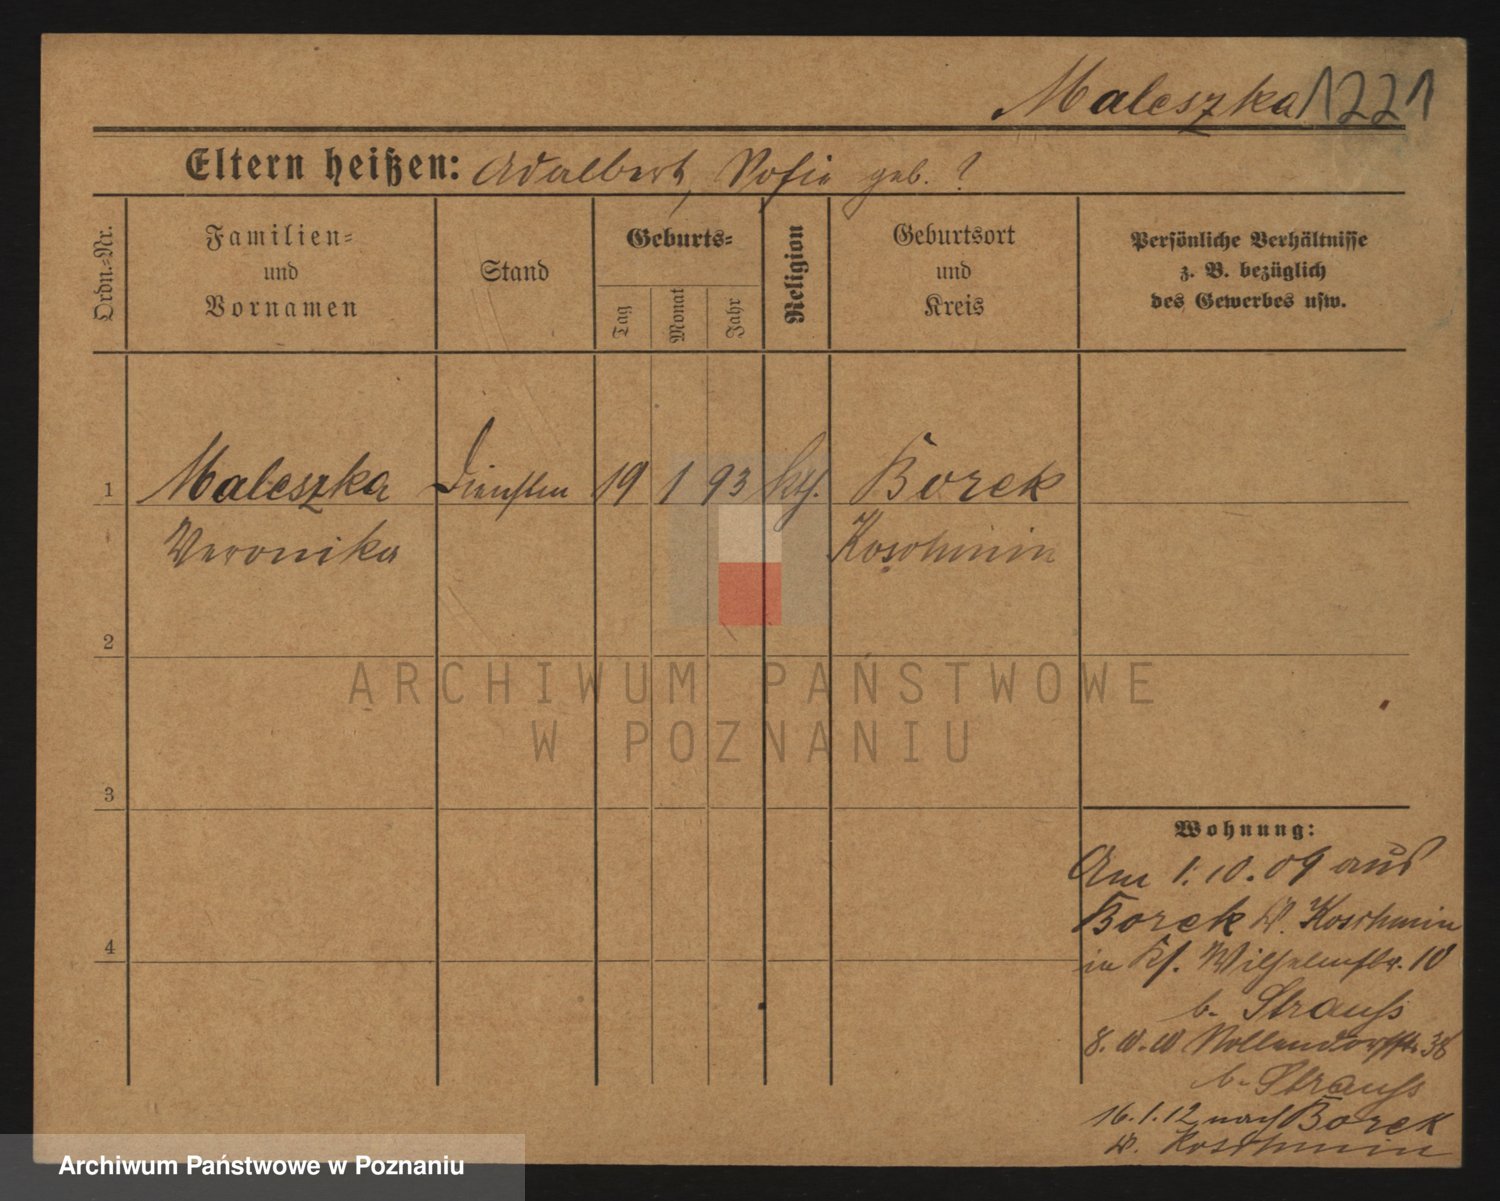 Maleszka 1221
Eltern heißen: Adalbert, Sofie geb. ?
Ordn.-Nr.
Familien-
und
Vornamen
Stand
Geburts-
Tag
Monat
Jahr
Religion
Geburtsort
und
Kreis
Persönliche Verhältnisse
z. B. bezüglich
des Gewerbes usw.
1 Maleszka 19 1 93 kth. Borek
Veronika Koschmin
2
ARCHIWUM PAŃSTWOWE
W POZNANIU
3
Wohnung:
Am 1.10.09 aus
Borek Koschmin
4
in Wilhelmstr. 10
b. Strauss
8.10.10 Nollendorfstr. 38
b. Strauss
16.1.12 nach Borek
Koschmin
Archiwum Państwowe w Poznaniu